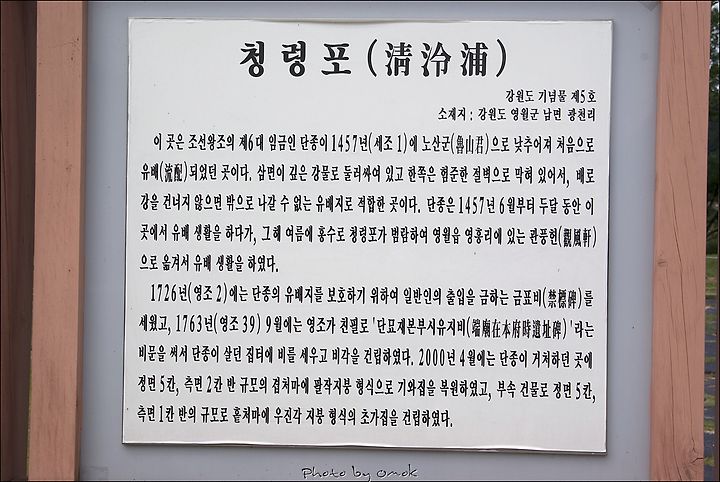 청령포(淸泠浦)
강원도 기념물 제5호
소재지 : 강원도 영월군 남면 광천리
이 곳은 조선왕조의 제6대 임금인 단종이 1457년(세조 1)에 노산군(魯山君)으로 낮추어져 처음으로
유배(流配)되었던 곳이다. 삼면이 깊은 강물로 둘러싸여 있고 한쪽은 험준한 절벽으로 막혀 있어서, 배로
강을 건너지 않으면 밖으로 나갈 수 없는 유배지로 적합한 곳이다. 단종은 1457년 6월부터 두달 동안 이
곳에서 유배 생활을 하다가, 그해 여름에 홍수로 청령포가 범람하여 영월읍 영흥리에 있는 관풍헌(觀風軒)
으로 옮겨서 유배 생활을 하였다.
1726년(영조 2)에는 단종의 유배지를 보호하기 위하여 일반인의 출입을 금하는 금표비(禁標碑)를
세웠고, 1763년(영조 39) 9월에는 영조가 친필로 '단묘재본부시유지비(端廟在本府時遺址碑)'라는
비문을 써서 단종이 살던 집터에 비를 세우고 비각을 건립하였다. 2000년 4월에는 단종이 거처하던 곳에
정면 5칸, 측면 2칸 반 규모의 겹처마에 팔작지붕 형식으로 기와집을 복원하였고, 부속 건물로 정면 5칸,
측면 1칸 반의 규모로 홑처마에 우진각 지붕 형식의 초가집을 건립하였다.
Photo by Omok